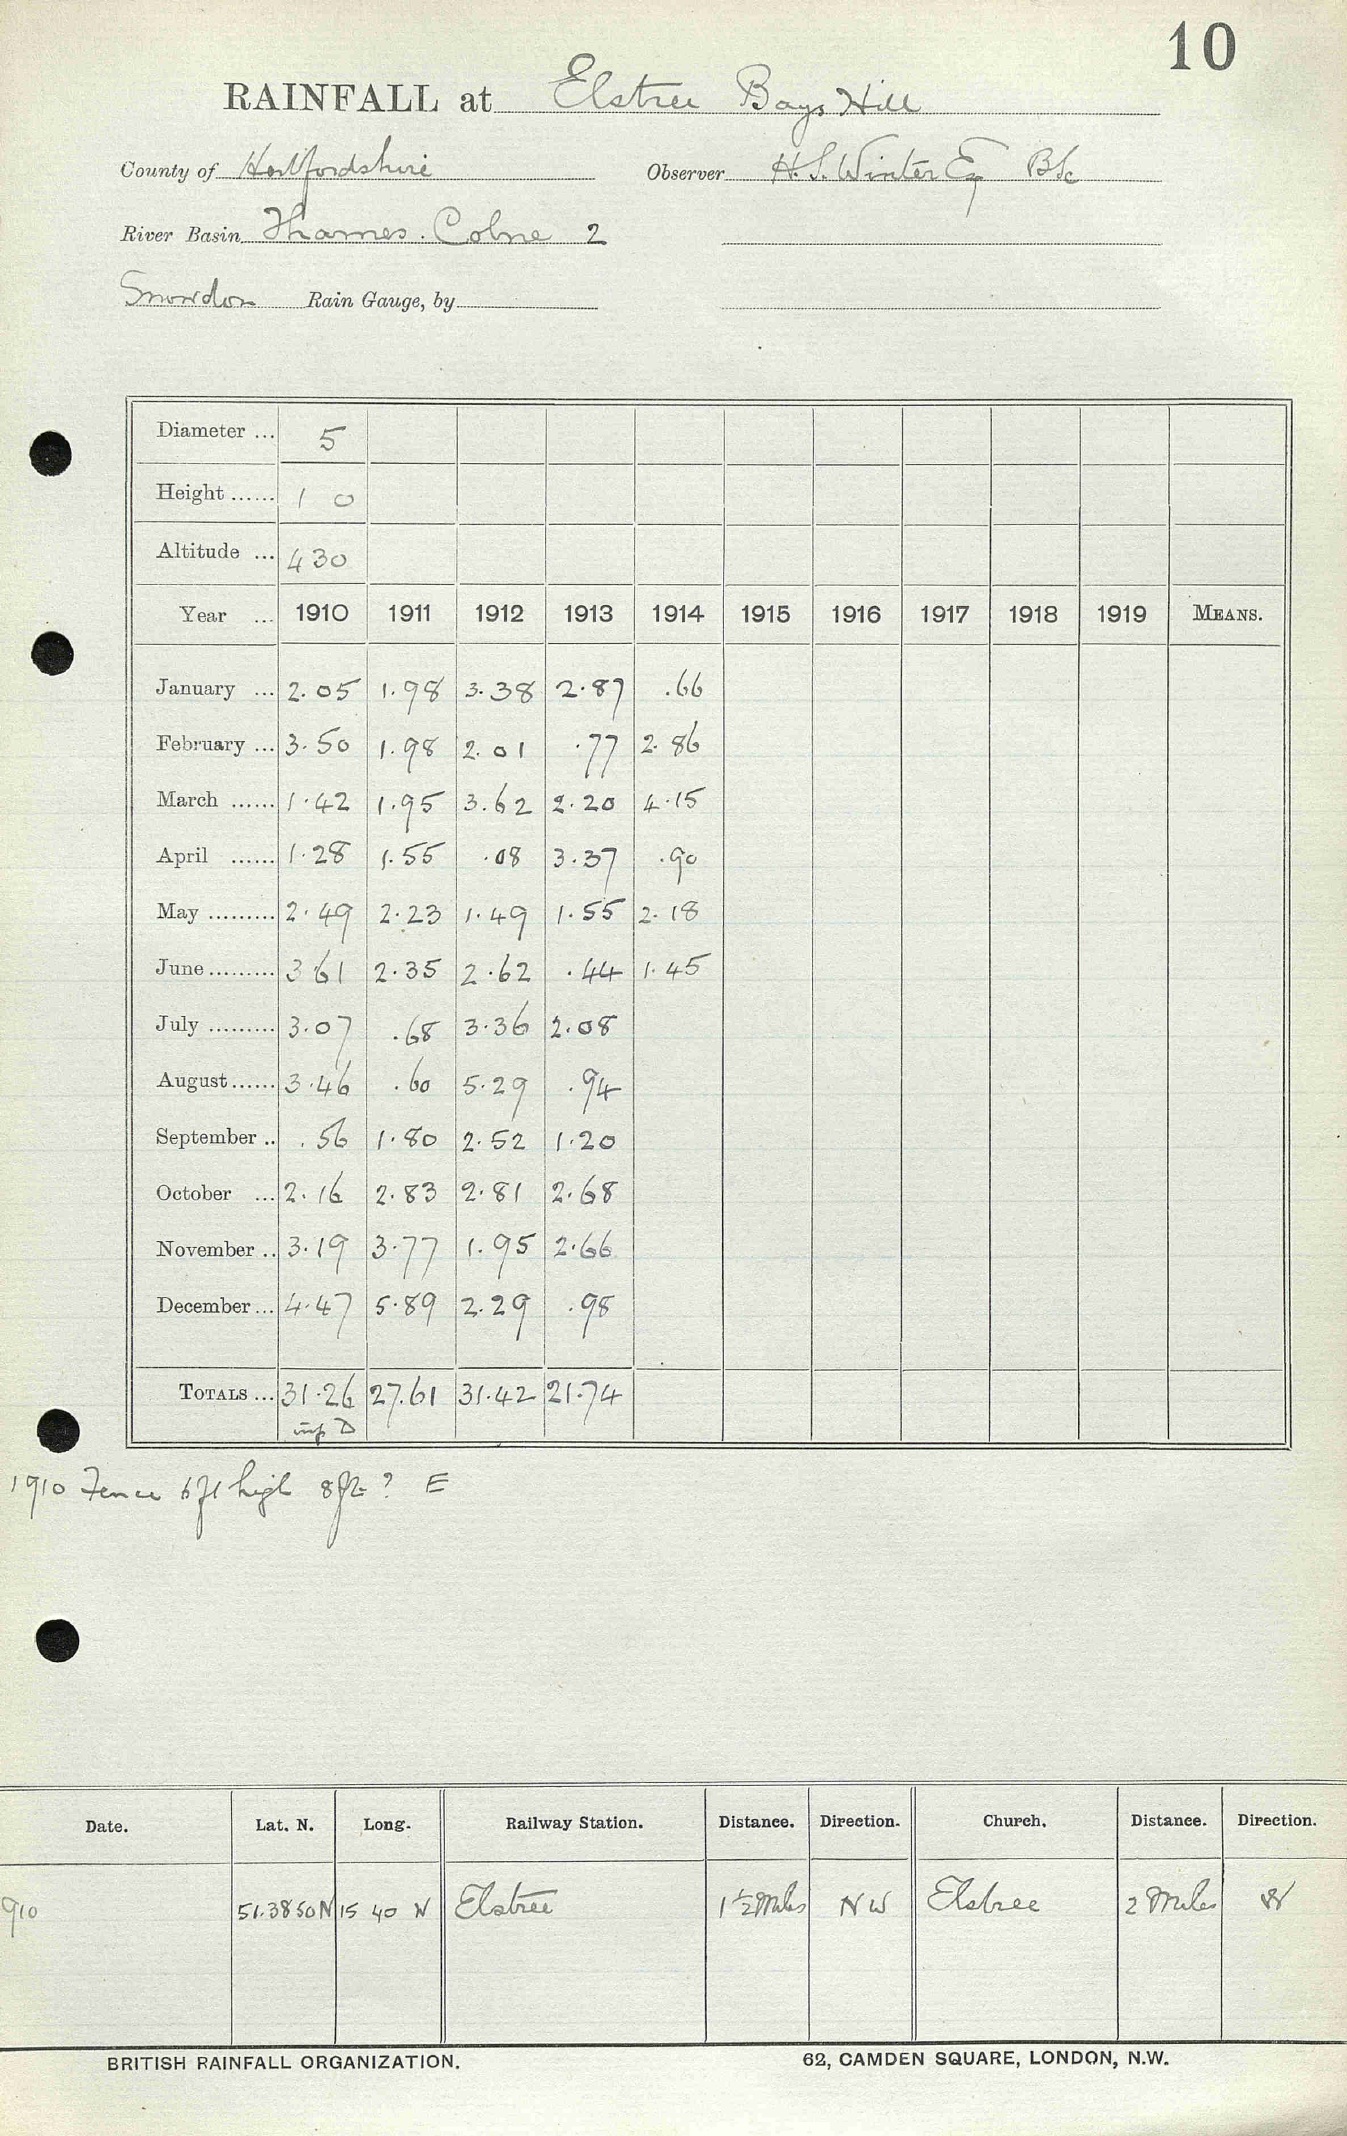 10
RAINFALL at Elstree Bays Hill
County of Hertfordshire Observer H. S. Winter Esq BSc
River Basin Thames. Colne 2
Snowdon Rain Gauge, by
Diameter ... 5
Height ...... 1 0
Altitude ... 430
Year ... 1910 1911 1912 1913 1914 1915 1916 1917 1918 1919 MEANS.
January ... 2.05 1.98 3.38 2.87 .66
February ... 3.50 1.98 2.01 .77 2.86
March ...... 1.42 1.95 3.62 2.20 4.15
April ...... 1.28 1.55 .08 3.37 .90
May ......... 2.49 2.23 1.49 1.55 2.18
June ......... 3.61 2.35 2.62 .44 1.45
July ......... 3.07 .68 3.36 2.08
August ...... 3.46 .60 5.29 .94
September .. .56 1.80 2.52 1.20
October ... 2.16 2.83 2.81 2.68
November .. 3.19 3.77 1.95 2.66
December ... 4.47 5.89 2.29 .98
TOTALS ... 31.26 27.61 31.42 21.74
D
1910 Fence 6ft high 8ft ? E
Date. Lat. N. Long. Railway Station. Distance. Direction. Church. Distance. Direction.
910 51.38 50 N 15 40 W Elstree 1½ Miles NW Elstree 2 Miles W
BRITISH RAINFALL ORGANIZATION. 62, CAMDEN SQUARE, LONDON, N.W.